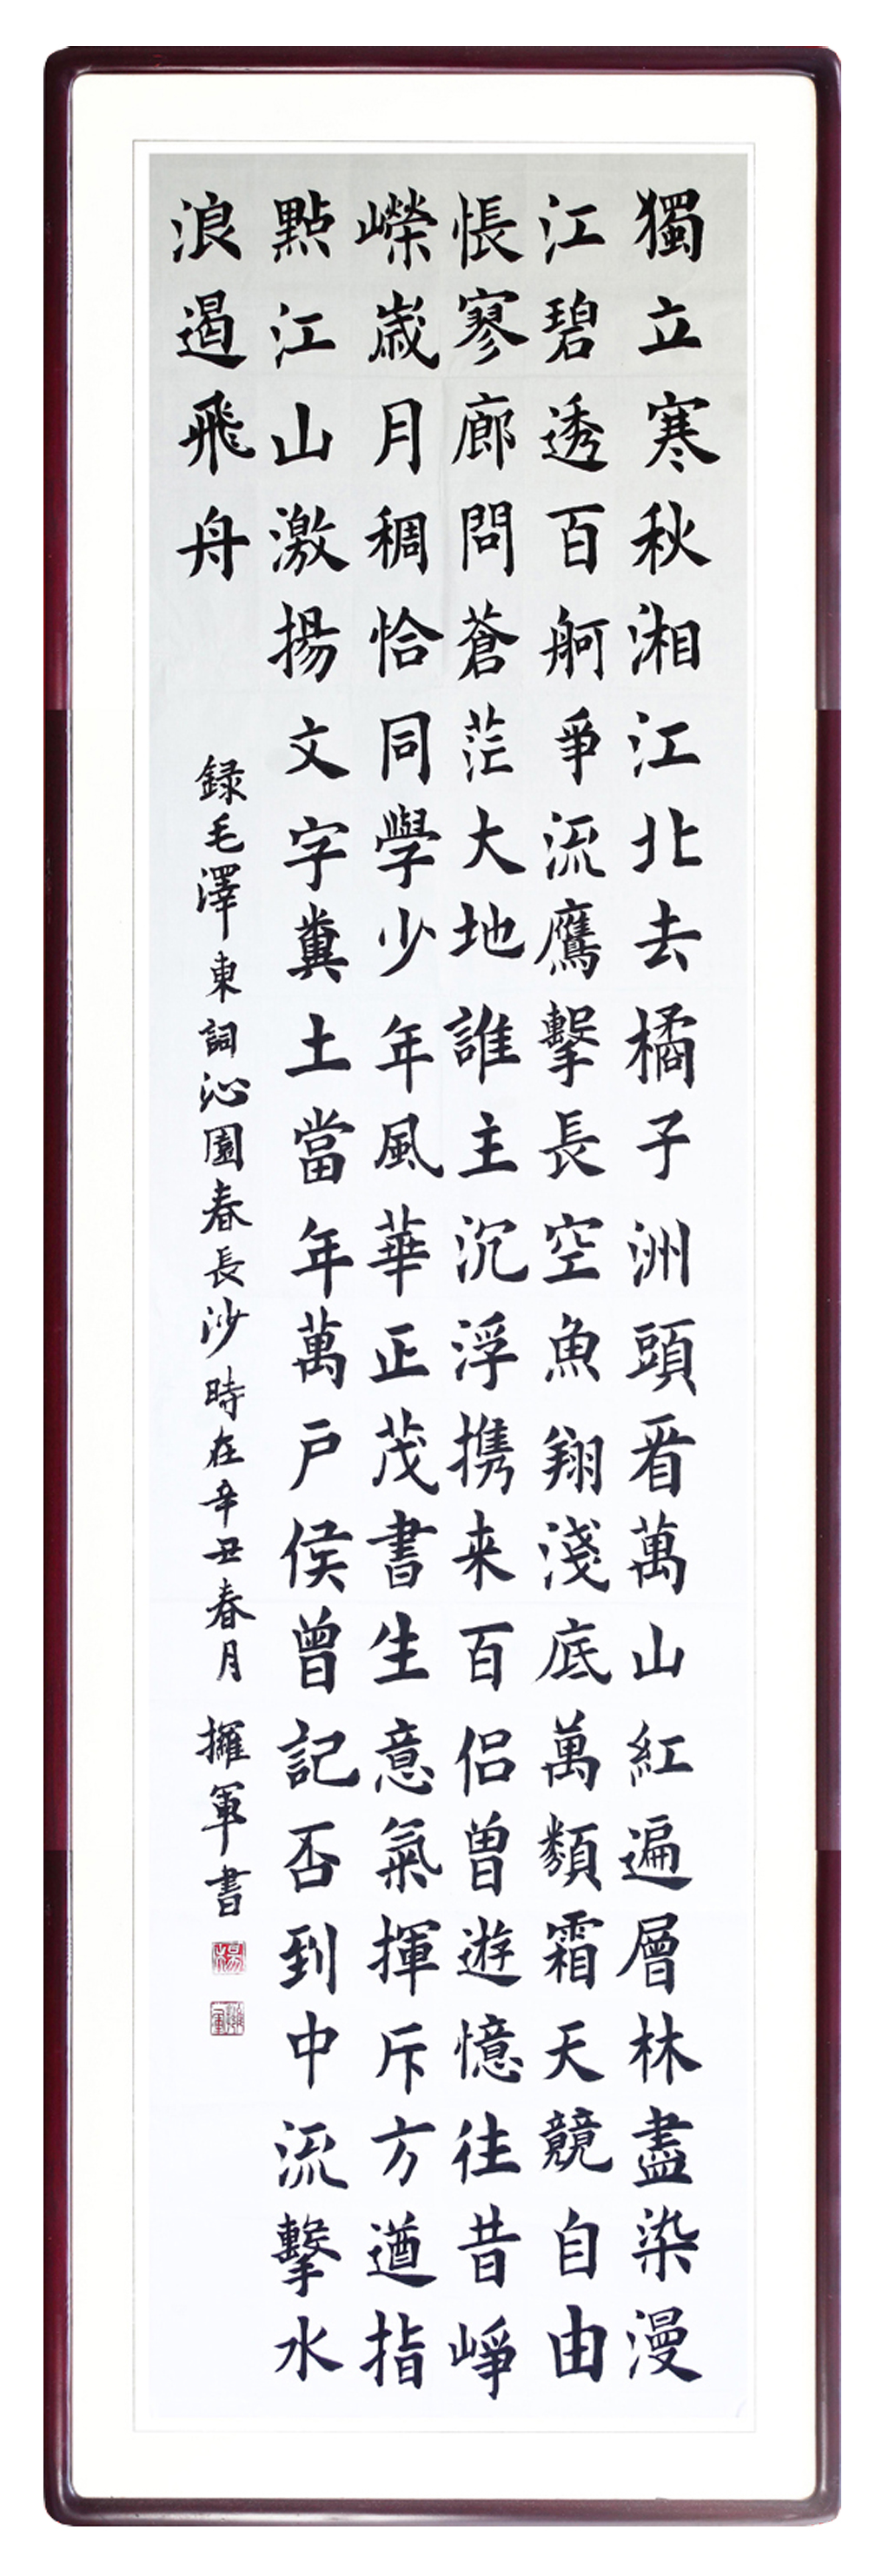 獨立寒秋湘江北去橘子洲頭看萬山紅遍層林盡染漫
江碧透百舸爭流鷹擊長空魚翔淺底萬類霜天競自由
悵寥廓問蒼茫大地誰主沉浮攜来百侣曾遊憶往昔崢
嶸歲月稠恰同學少年風華正茂書生意氣揮斥方遒指
點江山激揚文字糞土當年萬戶侯曾記否到中流擊水
浪遏飛舟
録毛澤東詞沁園春長沙時在辛丑春月 攞軍書
楊